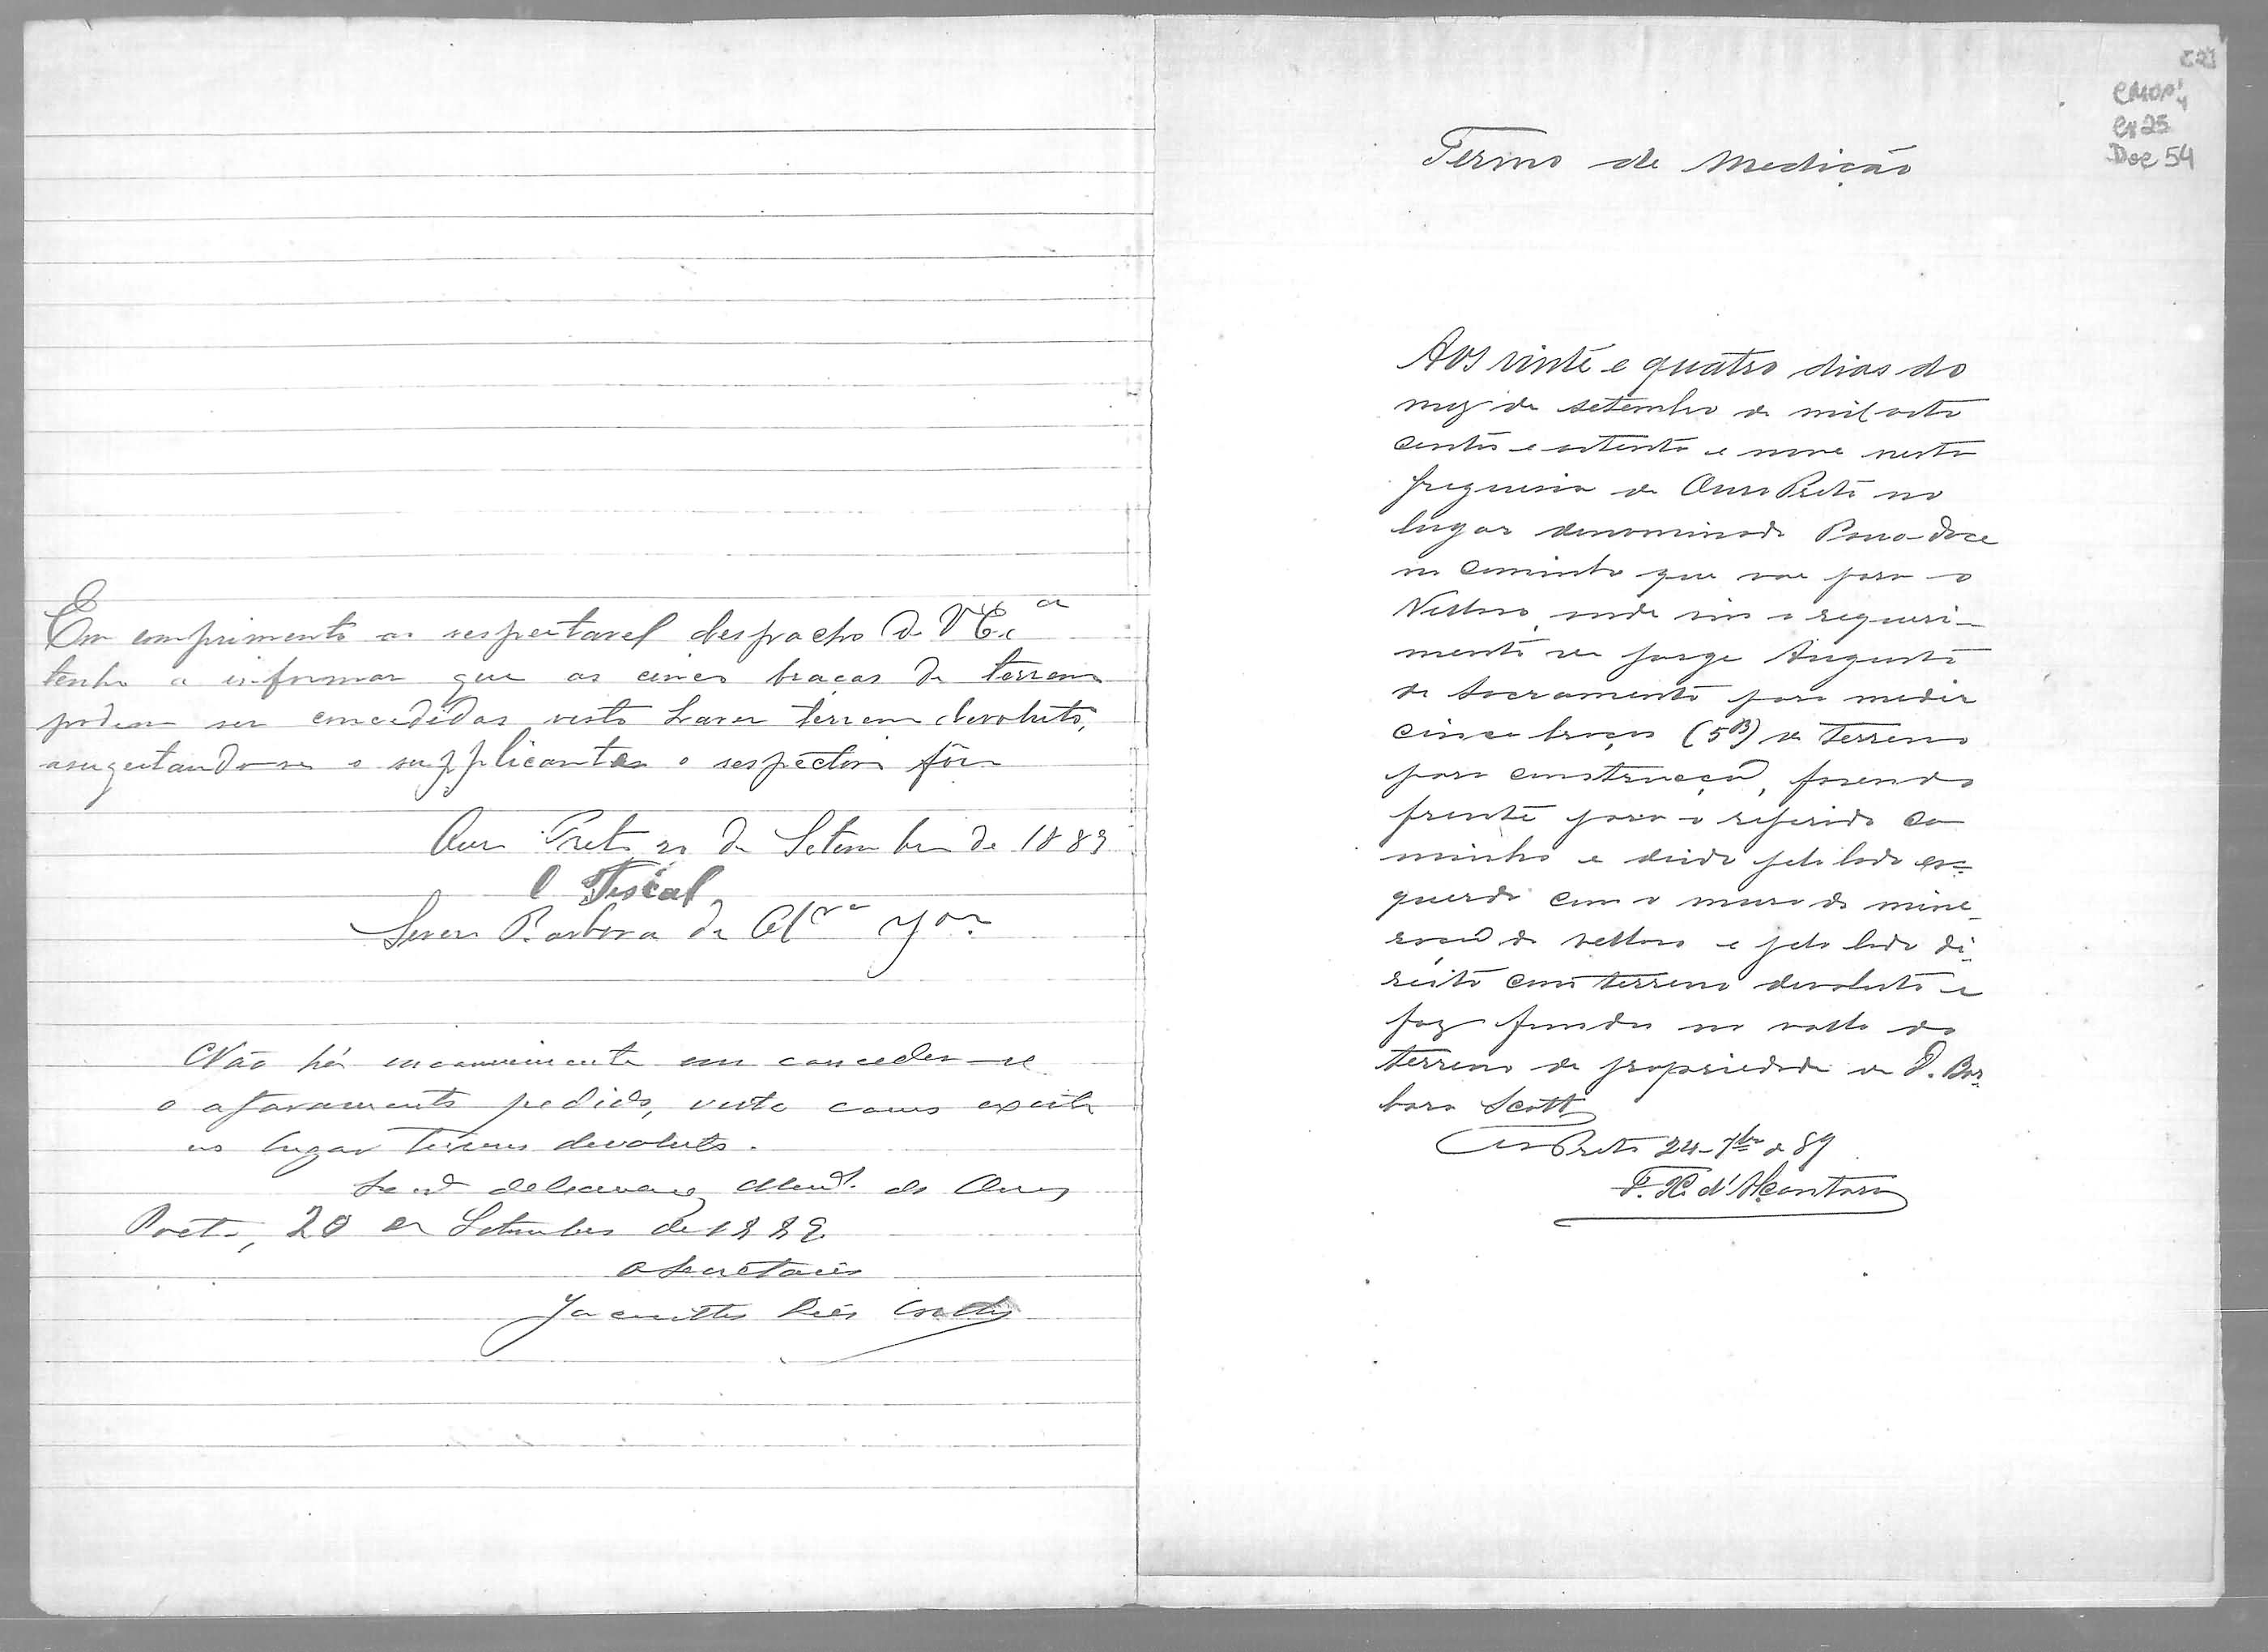 Em comprimento ao respeitavel despacho de V Ex.ª
tenho a informar que as cinco braças de terreno
podem ser concedidas visto haver terreno devoluto,
asugeitando-se o supplicante o respectivo fôro
Ouro Preto 20 de Setembro de 1889
O Fiscal
Barboza da
Não há inconveniente em conceder-se
o aforamento pedido, visto como existe
no lugar terreno devoluto.
da Camara Mun.al de Ouro
Preto, 20 de Setembro de 1889
O Secretario
Jacintho Dias
C21
CMOP
Cx 25
Doc 54
Termo de Medição
Aos vinte e quatro dias do
mez de setembro de mil oito
centos e oitenta e nove nesta
freguesia de Ouro Preto no
lugar denominado Passa-doce
no caminho que vae para o
Velloso, onde vim a requeri-
mento de Jorge Augusto
do Sacramento para medir
cinco braças (5B) de terreno
para construcção, fasendo
frente para o referido ca
minho e divide pelo lado es-
querdo com o muro da mine-
ração do Velloso e pelo lado di-
reito com terreno devoluto e
faz fundos no vallo do
terreno de propriedade de D. Bar-
bara Scott
Ouro Preto 24-7bro de 89
F. X. d'Alcantara